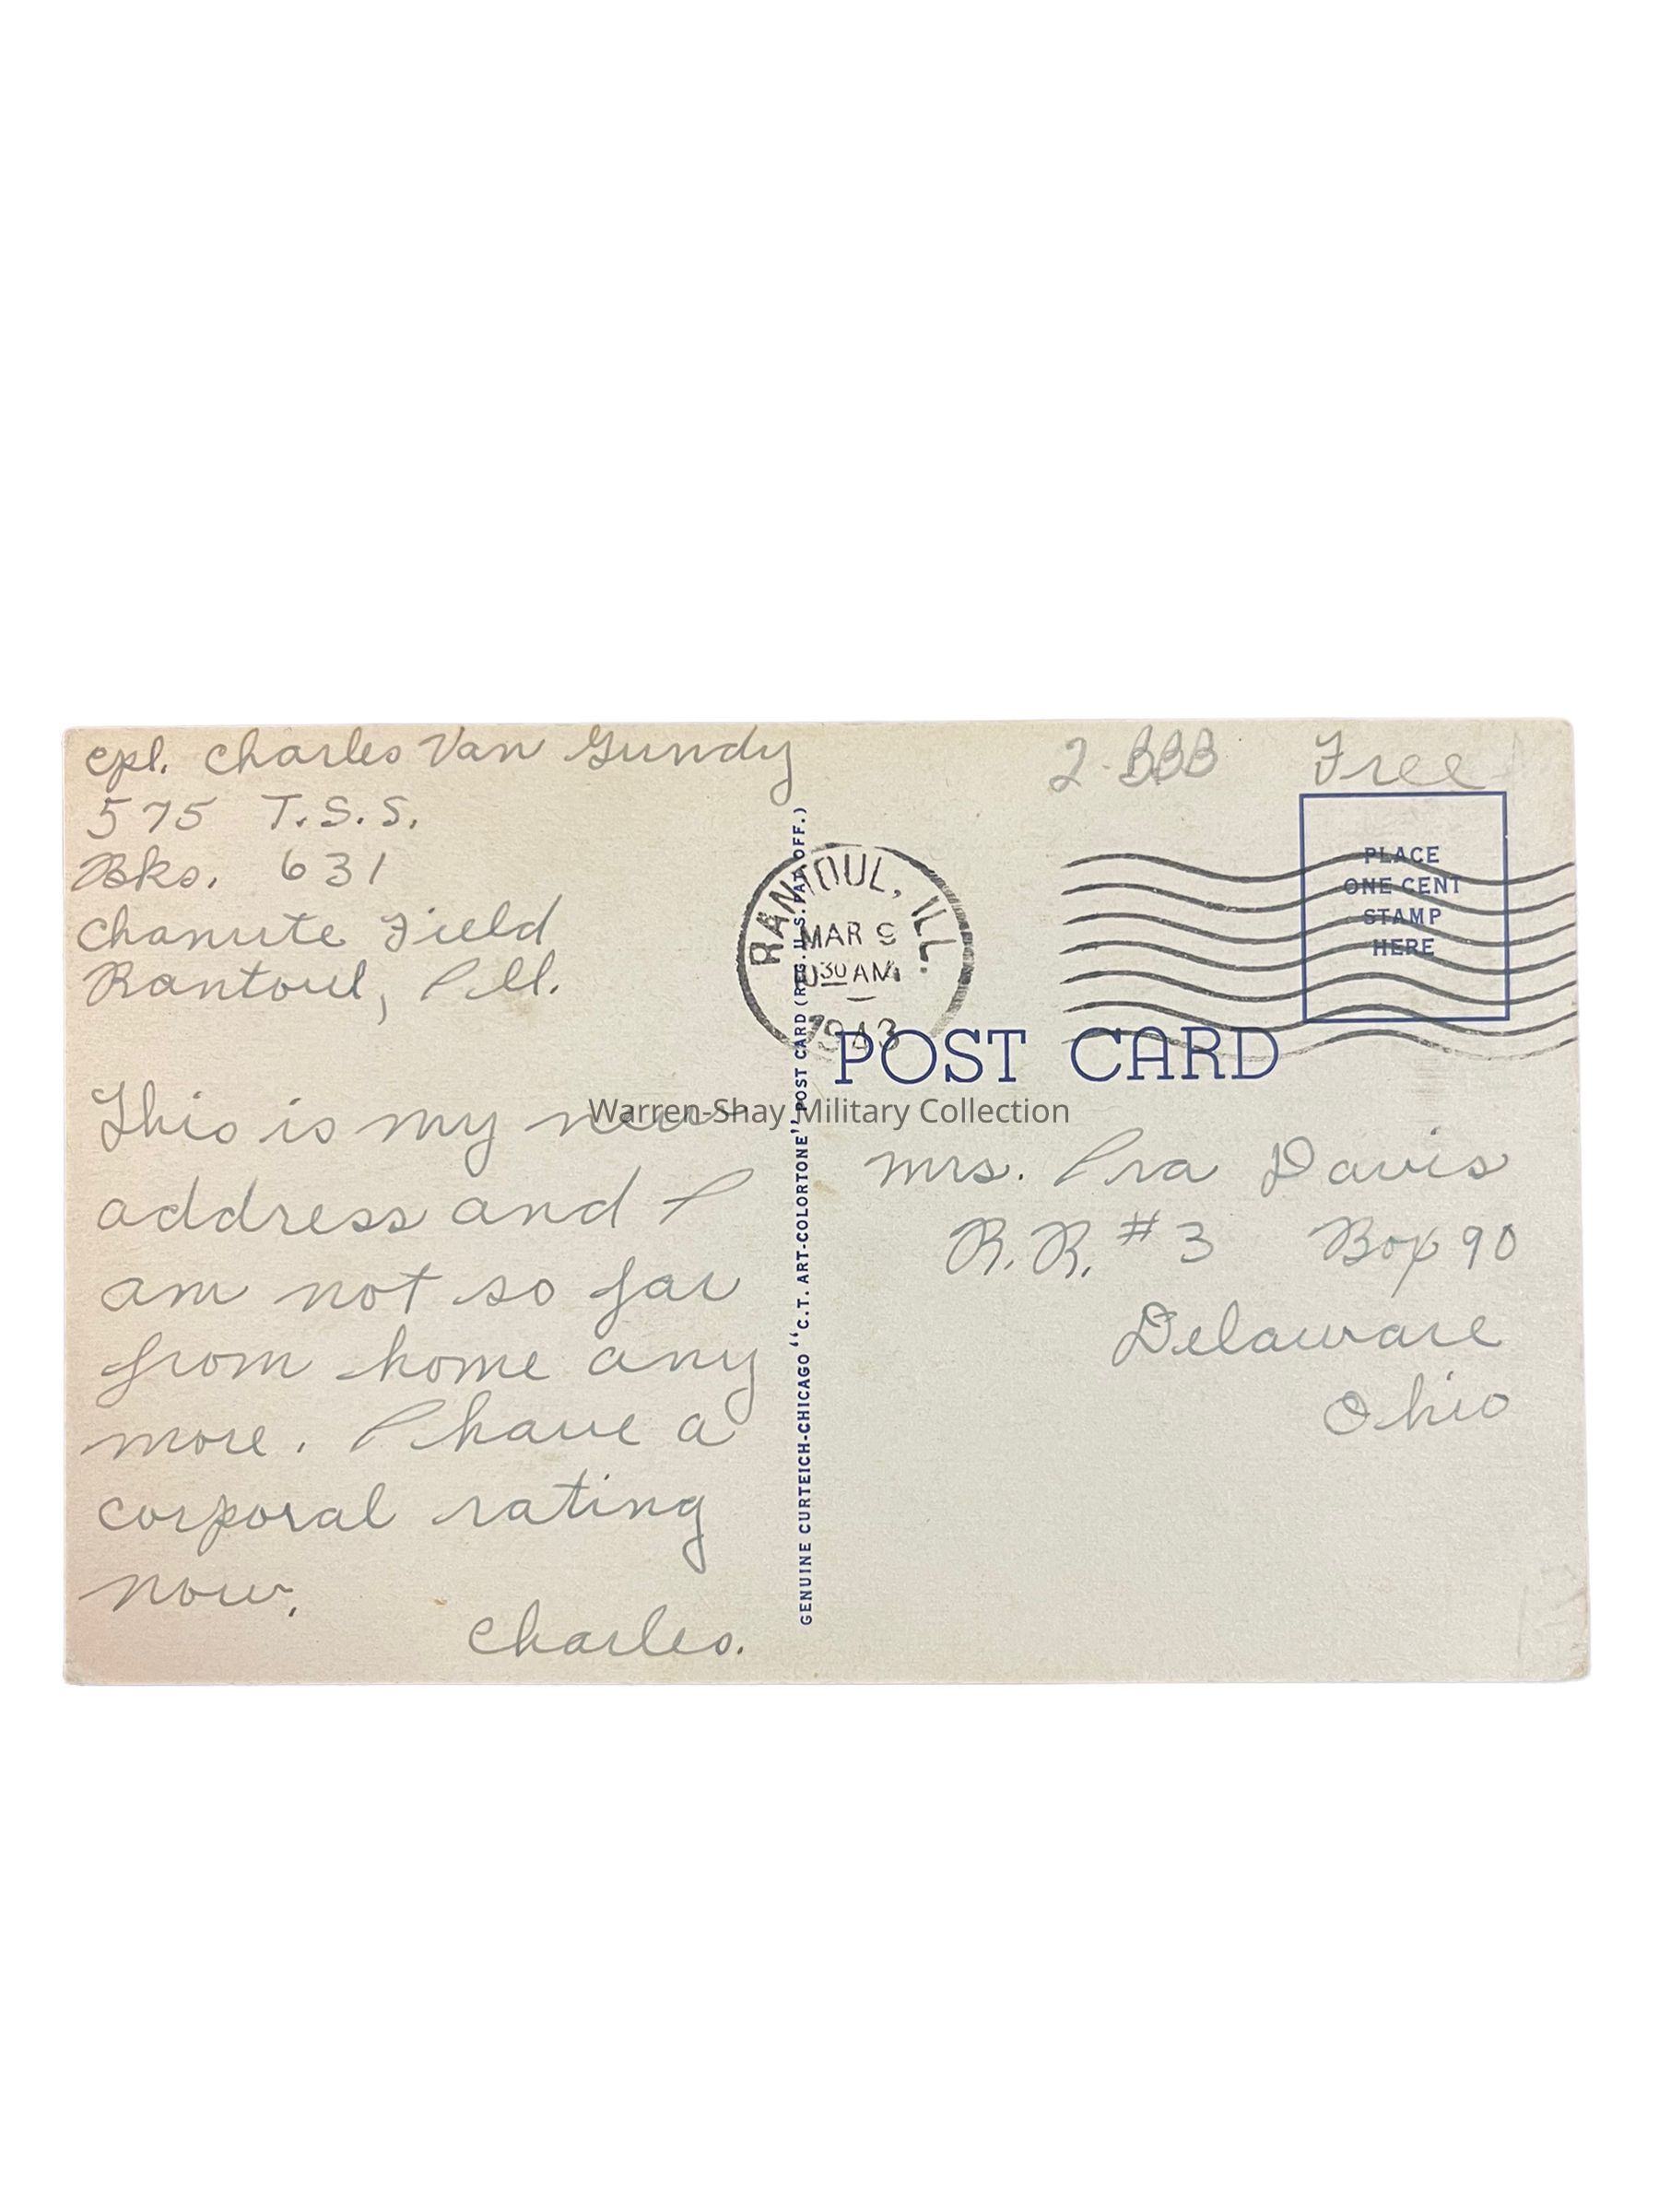 Cpl. Charles Van Gundy
575 T.S.S.
Bks. 631
Chanute Field
Rantoul, Ill.
This is my new
address and I
am not so far
from home any
more. I have a
corporal rating
now.
Charles.
GENUINE CURTEICH-CHICAGO "C.T. ART-COLORTONE" POST CARD (REG. U.S. PAT. OFF.)
2-BBB Free
PLACE
ONE CENT
STAMP
HERE
RANTOUL, ILL.
MAR 9
30 AM
1943
POST CARD
Warren-Shay Military Collection
Mrs. Ira Davis
R.R. #3 Box 90
Delaware
Ohio